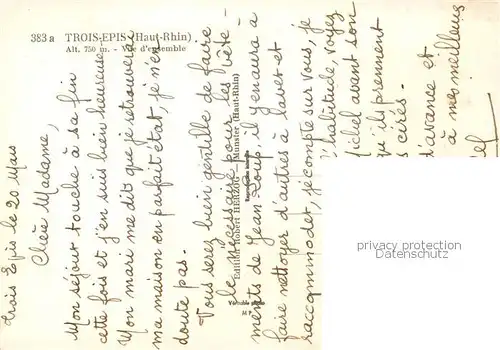 383 a TROIS-EPIS (Haut-Rhin)
Alt. 750 m. - Vue d'ensemble
Trois Epis le 20 Mars
Chère Madame,
Mon séjour touche à sa fin
cette fois et j'en suis bien heureuse
Mon mari me dit que je retrouverai
ma maison en parfait état, je n'en
doute pas.
Vous seres bien gentille de faire
le nécessaire pour les vête-
ments de Jean Loup, il y en aura à
faire nettoyer d'autres à laver et
raccommoder, je compte sur vous, je
habitude, voyez
Michel avant son
qu'ils prennent
cirés.
d'avance et
à mes meilleurs
Edition Robert HERZOG - Munster (Haut-Rhin)
Reproduction interdite
Véritable photo
M P
privacy protection
Datenschutz